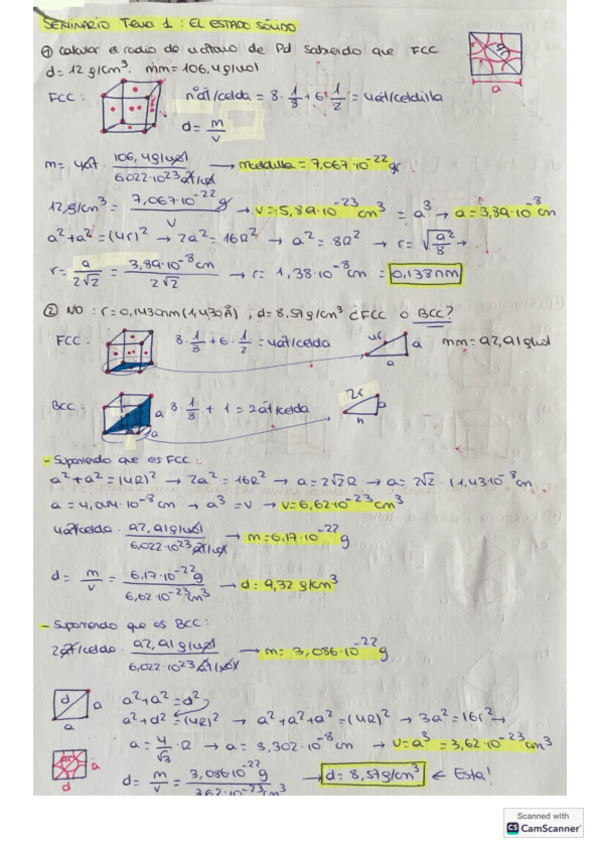 SEMINARIO Tema 1 : EL ESTADO SÓLIDO
① Calcular el radio de un átomo de Pd sabiendo que FCC
d = 12 g/cm³. mm = 106,4 g/mol
a
FCC : nº át/celda = 8 · 1/8 + 6 · 1/2 = 4 át/celdilla
d = m/v
m = 4 át · 106,4 g/mol / 6,022 · 10²³ át/mol → mceldilla = 7,067 · 10⁻²² gr.
12 g/cm³ = 7,067 · 10⁻²² g / V → V = 5,89 · 10⁻²³ cm³ = a³ → a = 3,89 · 10⁻⁸ cm
a² + a² = (4r)² → 2a² = 16R² → a² = 8R² → r = √(a²/8) →
r = a / 2√2 = 3,89 · 10⁻⁸ cm / 2√2 → r = 1,38 · 10⁻⁸ cm = 0,138 nm
② NO : r = 0,1430 nm (1,430 Å) , d = 8,57 g/cm³ ¿FCC o BCC?
FCC : 8 · 1/8 + 6 · 1/2 = 4 át/celda 4r a a mm = 92,91 g/mol
BCC : a a 8 · 1/8 + 1 = 2 át/celda 2r
- Suponiendo que es FCC :
a² + a² = (4R)² → 2a² = 16R² → a = 2√2 R → a = 2√2 · (1,43 · 10⁻⁸ cm
a = 4,04 · 10⁻⁸ cm → a³ = v → V = 6,62 · 10⁻²³ cm³
4 át/celda · 92,91 g/mol / 6,022 · 10²³ át/mol → m = 6,17 · 10⁻²² g
d = m/v = 6,17 · 10⁻²² g / 6,62 · 10⁻²³ cm³ → d = 9,32 g/cm³
- Suponiendo que es BCC :
2 át/celda · 92,91 g/mol / 6,022 · 10²³ át/mol → m = 3,086 · 10⁻²² g
d a a a² + a² = d²
a² + d² = (4R)² → a² + a² + a² = (4R)² → 3a² = 16r² →
a d a = 4/√3 · R → a = 3,302 · 10⁻⁸ cm → V = a³ = 3,62 · 10⁻²³ cm³
d = m/v = 3,086 · 10⁻²² g / 3,62 · 10⁻²³ cm³ → d = 8,57 g/cm³ ← Esta!
Scanned with
CS CamScanner